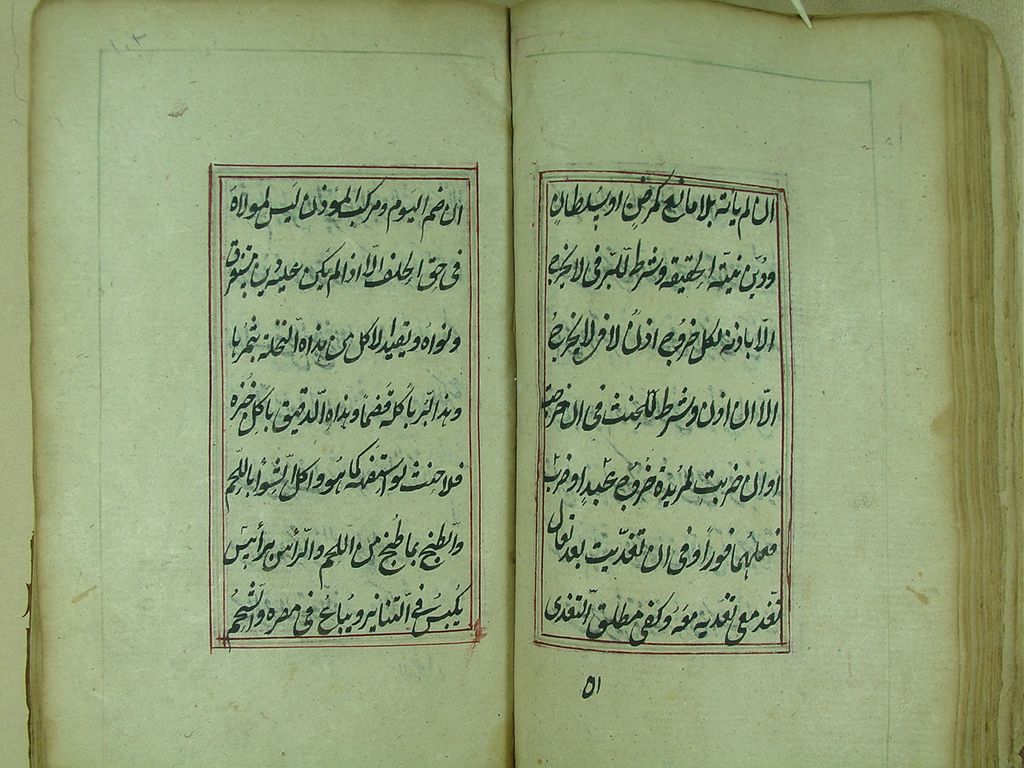 ان لم یاته بلا مانع کمرض او سلطان
ودین نیته الحقیقه وشرط للبر فی لا یخرج
الّا باذنه لکل خروج اذنٌ لا فی لا یخرج
الّا ان اذن وشرط للحنث فی ان خرجت
او ان ضربت لمریدة خروج عبدٍ او ضرب
فعلهما فوراً وفی ان تغدّیت بعد تعال
تغد معی تغدیه معه وکفی مطلق التغدی
۵۱
ان ضم الیوم ومرکب الموذن لیس لمولاه
فی حق الحلف الّا اذا لم یکن علیه دین مستغرق
ونواه ویقید الاکل من هذه النخلة بثمرها
وهذا البّر باکله قضماً وهذا الدقیق باکل خبزه
فلا حنث لو استفه کما هو واکل الشواء باللحم
والطبخ بما طبخ من اللحم والرأس برأیسٍ
یکبس فی التنانیر ویباع فی مصره والشحم